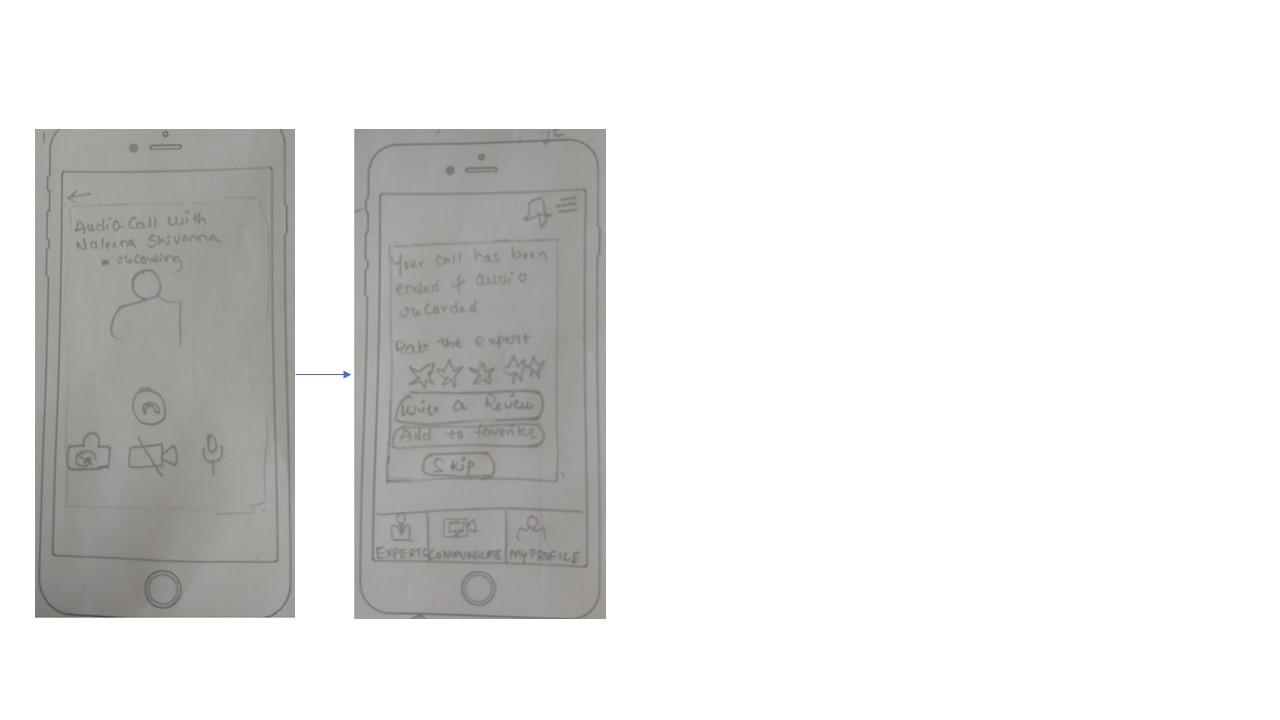 Audio Call with
Naleena Shivanna
recording
Your call has been
ended & audio
recorded
Rate the expert
Write a Review
Add to favorites
Skip
EXPERTS
COMMUNICATE
MY PROFILE